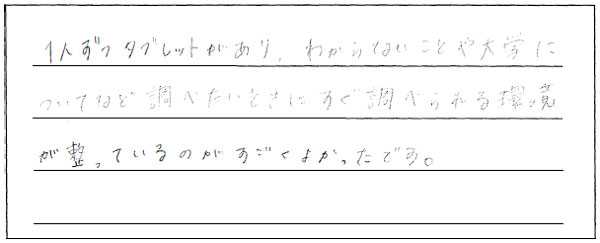 1人ずつタブレットがあり、わからないことや大学に
ついてなど調べたいときにすぐ調べられる環境
が整っているのがすごくよかったです。